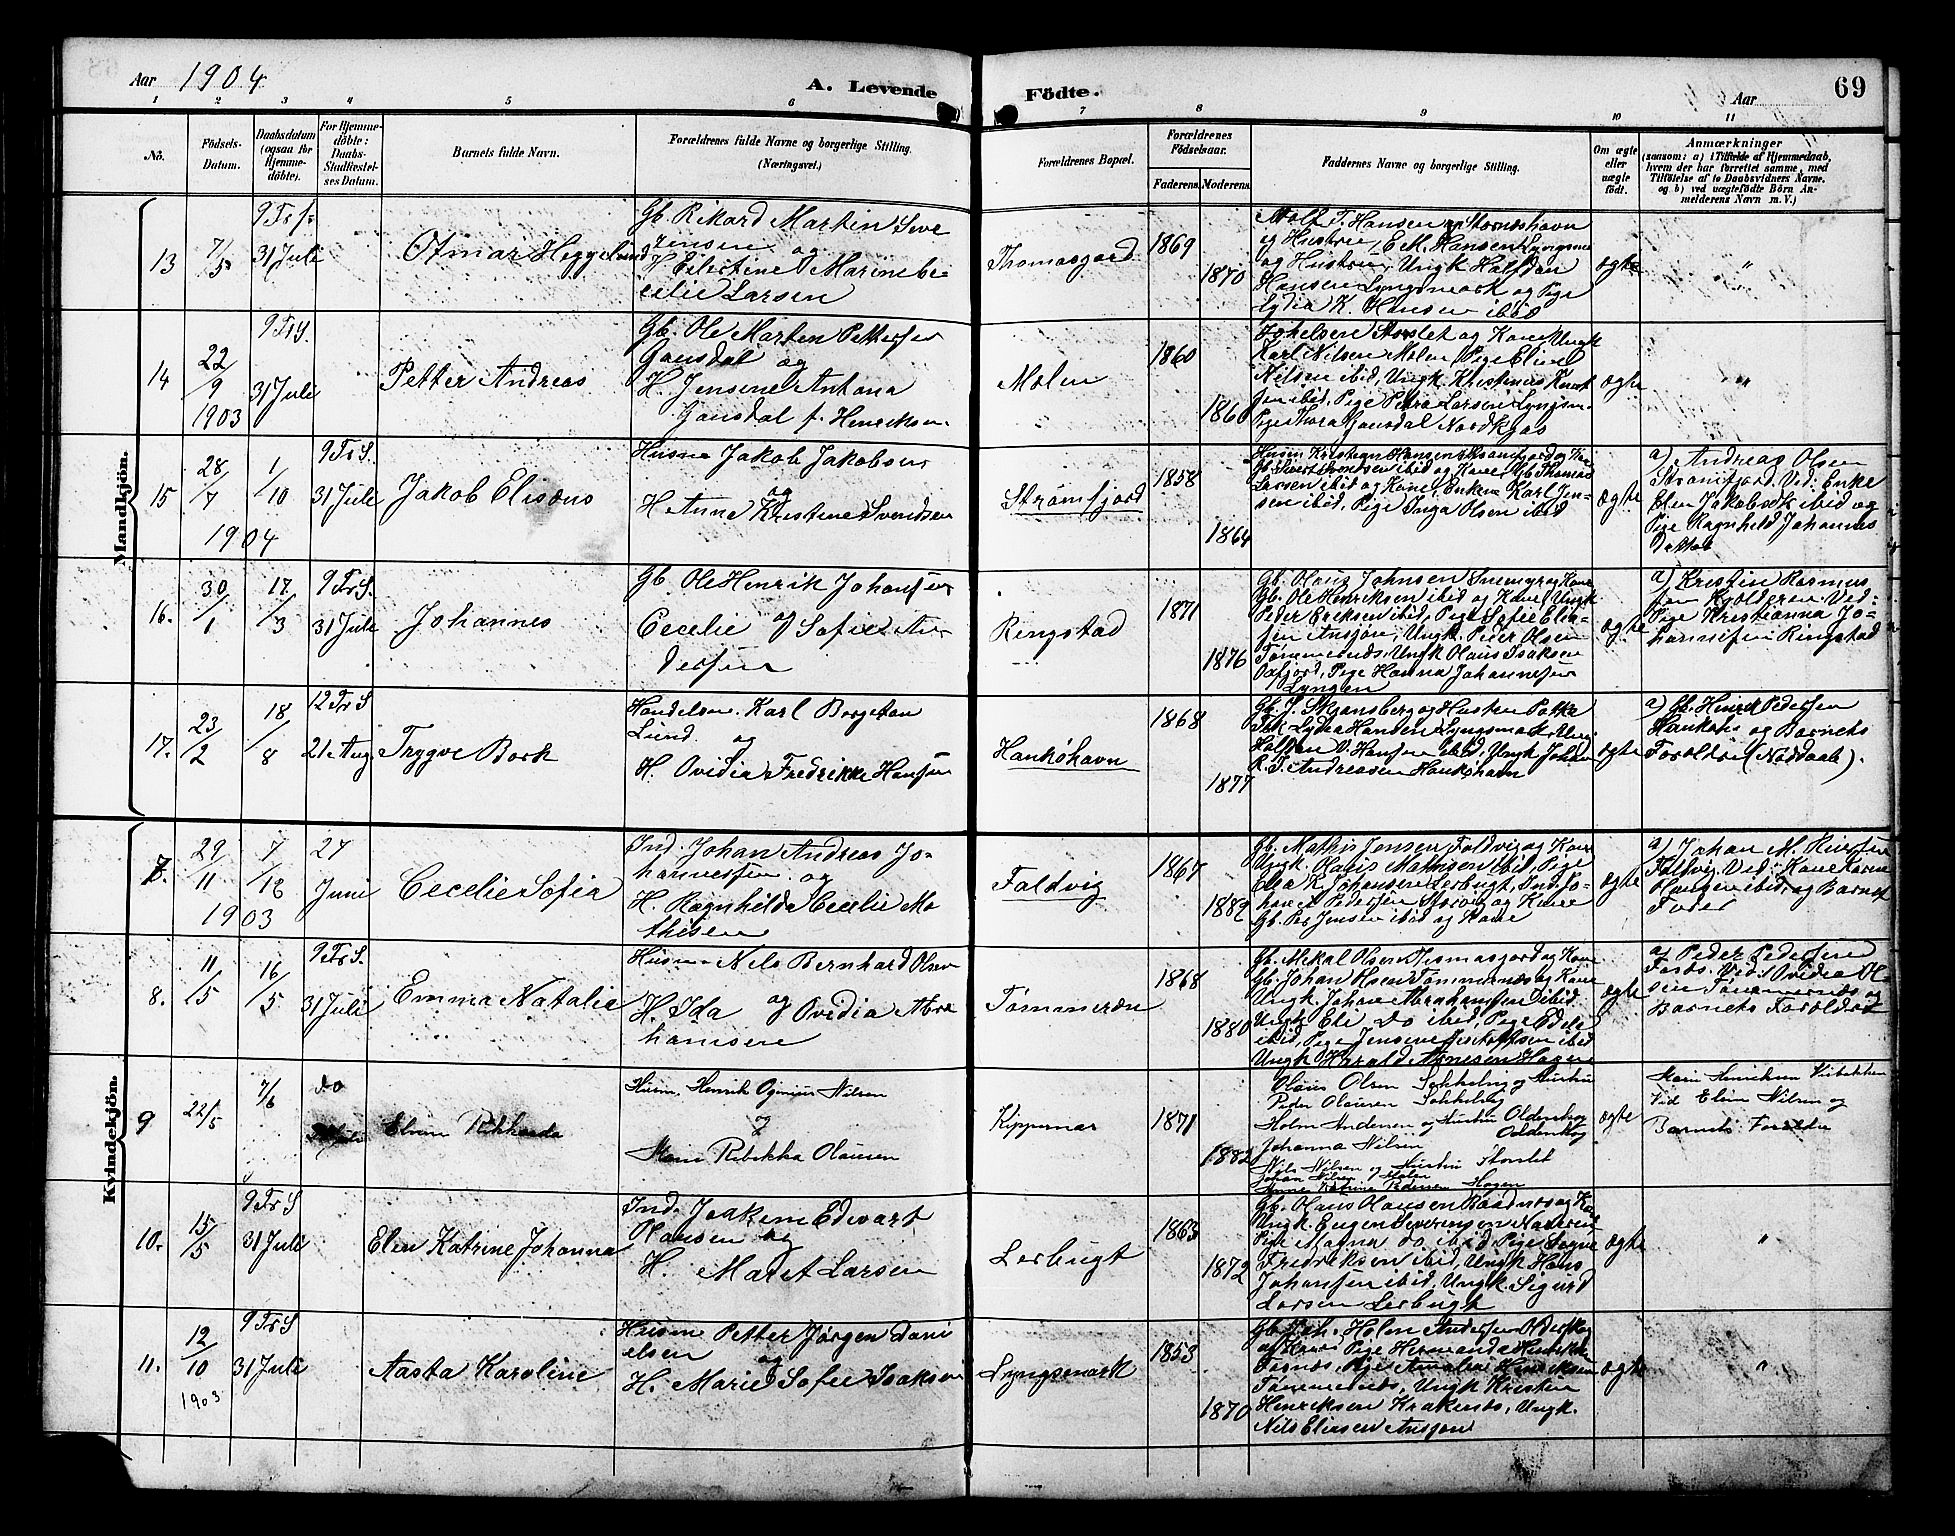 Aar 1904
A. Levende
Födte.
Aar
69
1 2 3 4 5 6 7 8 9 10 11
No.
Födsels-
Datum.
Daabsdatum
(ogsaa for
Hjemme-
döbte).
For Hjemme-
döbte:
Daabs-
Stadfæstel-
ses Datum.
Barnets fulde Navn.
Forældrenes fulde Navne og borgerlige Stilling.
(Næringsvei.)
Forældrenes Bopæl.
Forældrenes
Födselsaar.
Faderens.
Moderens.
Faddernes Navne og borgerlige Stilling.
Om ægte
eller
uægte
födt.
Anmærkninger
(saasom: a) i Tilfælde af Hjemmedaab,
hvem der har forrettet samme, med
Tilföielse af to Daabsvidners Navne.
og b) ved uægtefödte Börn An-
melderens Navn m. V.)
Mandkjön.
13
7/5
9 Tr. f.
31 Juli
Otmar Heggelund
Gb. Rikard Martin Seve
rensen og
H. Celestine Marine Ce
celie Larsen
Thomasgaard
1869
1870
T. Hansen Havnnes
og Hustru, E. M. Hansen Lyngsma
og Hustru, Ungk Halfdan
Hansen Lyngsmark og Pige
Lydia K. Hansen ibid
ægte
"
14
22/9
1903
9 Tr S.
31 Juli
Petter Andreas
Gb. Ole Marten Pettersen
Gausdal og
H. Jensine Antona
Gausdal f. Henriksen
Molen
1860
1860
Storslet og Kone Ungk
Karl Nilsen Molen, Pige Eline
Nilsen ibid, Ungk. Kristenus Knut
sen ibid, Pige Petra Larsen Lyngsm.
Pige Thora Gausdal Nordkjos
ægte
"
15
28/7
1/10
1904
9 Tr S.
31 Juli
Jakob Elisæus
Husm Jakob Jakobsen
og
H. Anne Kristine Svendsen
Strømfjord
1858
1864
Larsen ibid og Kone, Enkem Karl Jen-
sen ibid, Pige Inga Olsen ibid
ægte
a) Andreas Olsen
Strømfjord Ved: Enke
Elen Jakobsdk ibid og
Pige Ragnhild Johannes
datter
16.
30/1
17/3
9 Tr S.
31 Juli
Johannes
Gb. Ole Henrik Johansen
og
Cecelie Sofie An
dersen
Ringstad
1871
1876
Gb. Olaus Johnsen Snemyr og Kone
Gb. Ole Henriksen ibid og Kone, Ungk
Peder Eriksen ibid, Pige Sofie Elia-
sen Ansjøn, Ungk. Peder Olsen
Tømmernæs, Ungk Olaus Isaksen
Oxfjord, Pige Hanna Johannesen
Lyngen
ægte
a) Kristin Rasmus
sen Kjolderen Ved:
Pige Kristianna Jo-
hannesen Ringstad
17.
23/2
18/8
12 Tr S
21. Aug
Trygve Bork
Handelsm. Karl Borgetan
Lund. og
H. Ovidia Fredrikke Hansen
Haukøhavn
1868
1877
Gb. J. Skjønsberg og Hustru
Lydia Hansen Lyngsmark, Ung.
Halfdan V. Hansen ibid, Ungk Johan
R. J. Andreasen Haukøhavn
ægte
a) Gb. Henrik Pedersen
Haukøh. og Barnets
Forældre (Nøddaab).
Kvindekjön.
7.
29/11
7/12
1903
27
Juni
Cecelie Sofia
Ind. Johan Andreas Jo-
hannesen og
H. Ragnhilda Cecelie Ma
thisen
Faldvig
1867
1882
Gb. Mathis Jensen Faldvig og Kone
Ungk. Olaus Mathisen ibid, Pige
Elsa K. Johansen Lerbugt, Ind. Jo-
han A. Pedersen Storvig og Kone
Gb. Per Jensen ibid og Kone
ægte
a) Johan M. Iversen
Faldvig. Ved: Kone Karen
Olausen ibid, og Barnets
Fader
8.
11/5
16/5
9 Tr S.
31 Juli
Emma Natalia
Husm. Nils Bernhard Olsen
og
H. Ida Ovidia Abra
hamsen
Tømmernæs
1868
1880
Gb. Mekal Olsen Tomasgord og Kone
Gb. Johan Olsen Tømmernæs og Kone
Ungk. Johan Abrahamsen ibid
Ungk Eli do ibid, Pige Edele
ibid, Pige Jensine Kristoffersen ibid
Ungk Harald Arnesen Hagen
ægte
a) Peder Pedersen
Fosds. Vid: Ovidia Ol
sen Tømmernæs og
Barnets Forældre
9
22/5
7/6
do
Elvine Rikkarda
Husm. Henrik Oginius Nilsen
og
Marie Rebekka Olausen
Kippernæs
1871
1882
Olaus Olsen Sokkelvig og Hustru
Peder Olausen Sokkelvig
Holm Andersen og Hustru Olderskog
Olderskog
Johanna Nilsen
Nils Nilsen og Hustru Storslet
Johan Nilsen Molen
Anne Katrine Pedersen Hagen
ægte
Marie Henriksen
Vid Eline Nilsen og
Barnets Forældre
10.
15/5
9 Tr S
31 Juli
Elen Katrine Johanna
Ind. Joakim Edvart
Olausen og
H. Maret Larsen
Lerbugt
1863
1872
Gb. Olaus Olausen Baadnæs og Kone
Ungk. Eugen Severinsen
Pige Magna do ibid, Pige Signe
Fredriksen ibid, Ungk Hans
Johansen ibid, Ungk. Sigurd
Larsen Lerbugt
ægte
"
11.
12/10
1903
9 Tr S
31 Juli
Aasta Karoline
Husm Petter Jørgen Dani
elsen og
H. Marie Sofie Isaksen
Lyngsmark
1853
1870
Gb. Joh. Holm Andersen Oldersko
Pige Hermanda
Pige Amalie Henriksen
Tømmernæs, Ungk Kristen
Henriksen Krakenes, Ungk.
Nils Eliasen Ansjøn
ægte
"